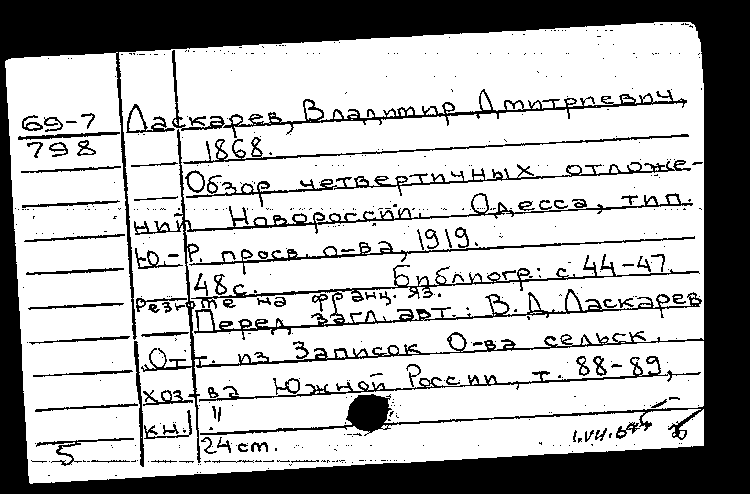 69-7 Ласкарев, Владимир Дмитриевич,
798 1868.
Обзор четвертичных отложе-
ний Новороссии. Одесса, тип.
Ю.-Р. просв. о-ва, 1919.
48с. Библиогр: с. 44-47.
Резюме на франц. яз.
Перед загл. авт.: В.Д. Ласкарев
„Отт. из Записок О-ва сельск.
хоз-ва Южной России, т. 88-89,
кн. 1."
5 24 cm.